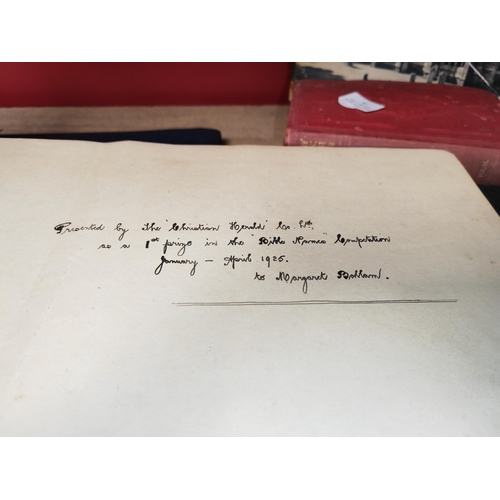 Presented by The "Christian Herald" Co. Ltd.
as a 1st prize in the "Bible Names" Competition
January - April 1925.
to Margaret